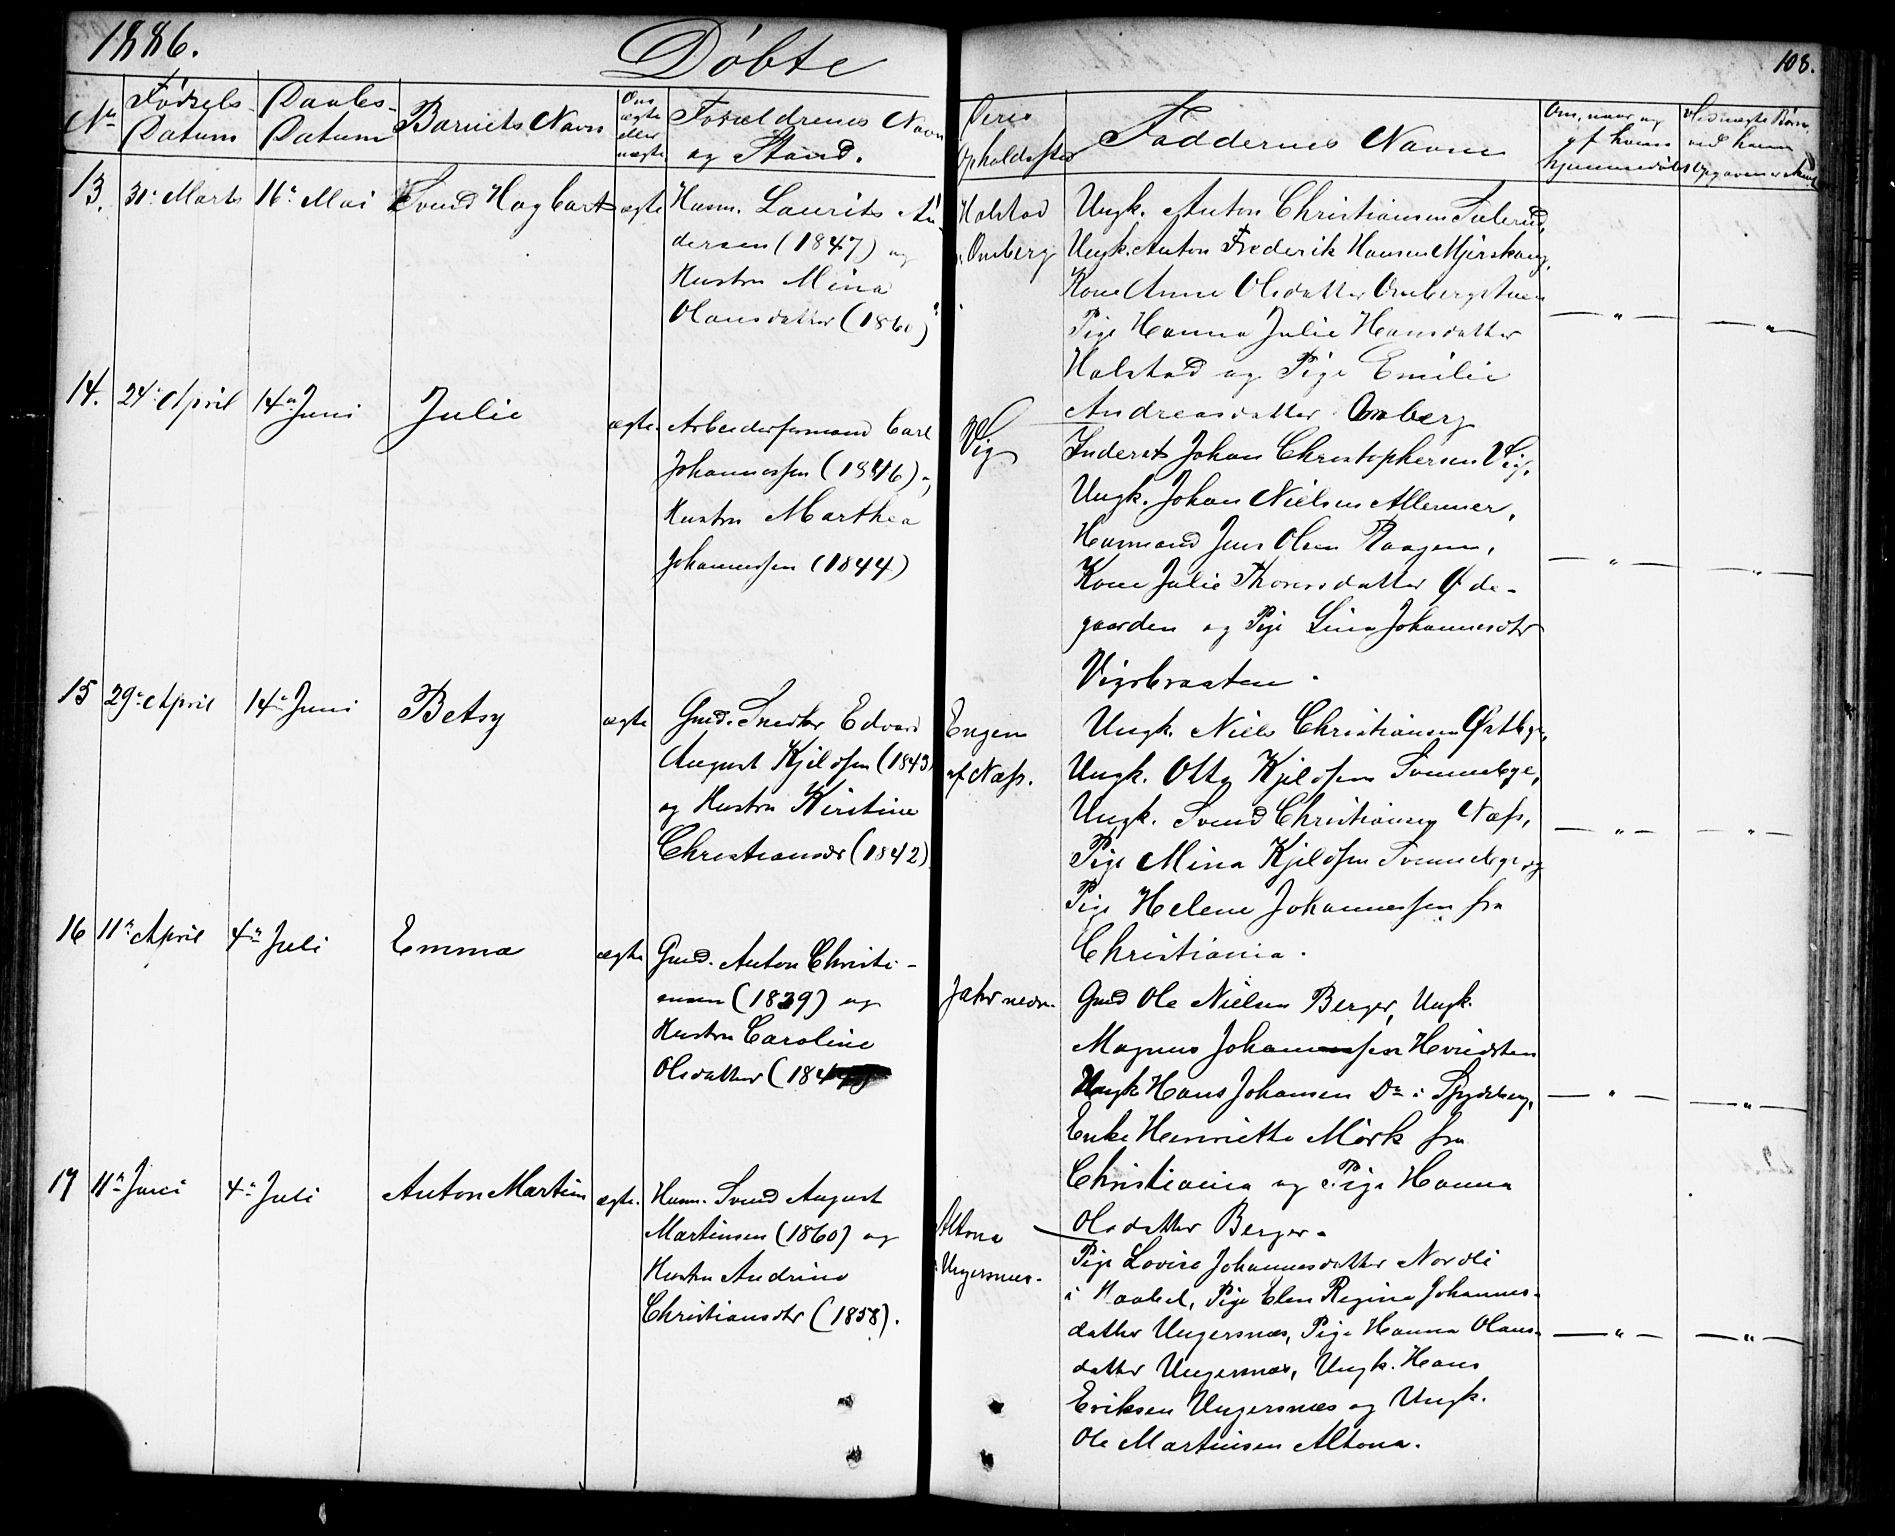 1886.
Døbte
108.
No
Fødsels-
Datum
Daabs-
Datum
Barnets Navn
Om
ægte
eller
uægte
Forældrenes Navn
og Stand.
Deres
Opholdssted
Faddernes Navne
Om, naar og
af hvem
hjemmedøbt
13.
31te Marts
16de Mai
Svend Hagbart
ægte
Husm. Laurits An-
dersen (1847) og
Hustru Mina
Olausdatter (1860)
Halstad
Omberg
Ungk. Anton Christiansen
Ungk. Anton Frederik Hansen
Kone Anne Olsdatter
Pige Hanna Julie Hansdatter
Halstad og Pige Emilie
Andreasdatter Omberg
14.
24de April
14de Juni
Julie
ægte
Arbeiderformand Carl
Johannessen (1846) og
Hustru Marthea
Johannessen (1844)
Vig
Inderst Johan Christophersen Vig,
Ungk. Johan Nielsen
Husmand Jens Olsen
Kone Julie Thoresdatter Øde-
gaarden og Pige Lina Johannesdtr
Vigsbraaten.
15
29de April
14de Juni
Betsy
ægte
Gmd. Snedker Edvard
August Kjelsen (1843)
og Hustru Kirstine
Christiansdr (1842)
Engen
af Næss.
Ungk. Niels Christiansen Østbye,
Ungk. Otto Kjelsen
Ungk. Svend Christiansen Næss,
Pige Mina Kjelsen og
Pige Helene Johannessen fra
Christiania.
16
11te April
4de Juli
Emma
ægte
Gmd. Anton Christi-
ansen (1839) og
Hustru Caroline
Olsdatter (184
Jahr nedre.
Gmd Ole Nielsen Berger, Ungk.
Magnus Johannessen Hvidsten
Ungk Hans Johansen Do i Spydeberg,
Enke Henriette Mørk fra
Christiania og Pige Hanna
Olsdatter Berger.
17
11te Juni
4de Juli
Anton Martin
ægte.
Husm. Svend August
Martinsen (1860) og
Hustru Andrine
Christiansdtr (1858).
Altona
Ungersnæs.
Pige Lovise Johannesdatter Nordli
i Haabøl, Pige Elen Regine Johannes-
datter Ungersnæs, Pige Hanna Olaus-
datter Ungersnæs, Ungk. Hans
Eriksen Ungersnæs og Ungk.
Ole Martinsen Altona.